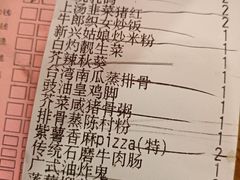 上汤韭菜猪红 1
牛郎织女炒饭 2
新兴姑娘炒米粉 1
白灼靓生菜 1
芥辣秋葵
台湾南瓜蒸排骨 2
豉油皇鸡脚 2
芥菜咸猪骨粥 1
排骨蒸陈村粉
紫薯香麻pizza(特) 2
传统石磨牛肉肠 1
广式油炸鬼